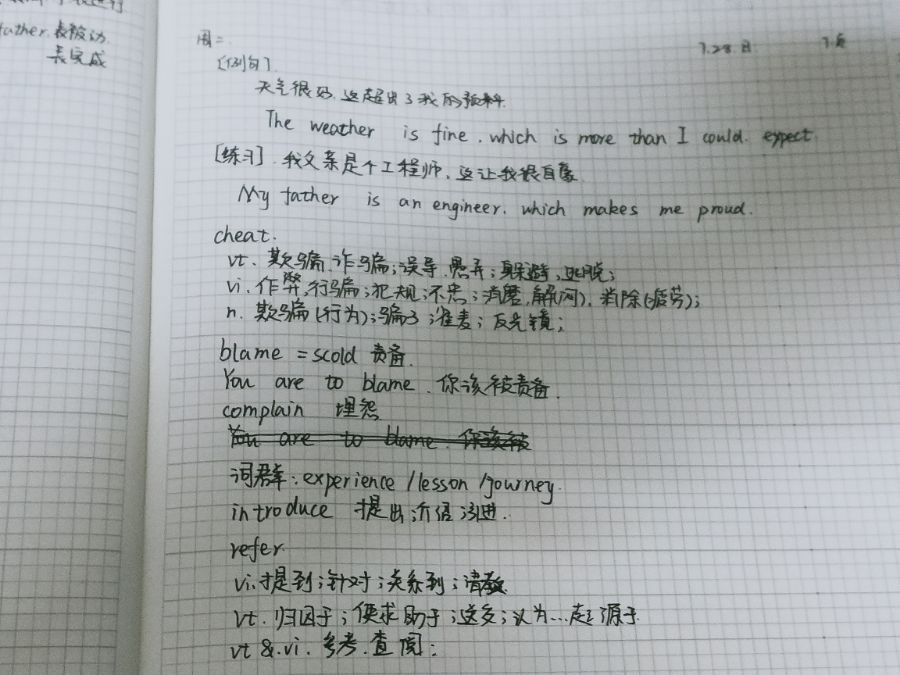 father.表被动
表完成
7.28.日
[例句].
天气很好.这超出了我的预料.
The weather is fine.which is more than I could expect.
[练习].我父亲是个工程师.这让我很自豪.
My father is an engineer.which makes me proud.
cheat.
vt.欺骗.诈骗;误导.愚弄;躲避,逃脱;
vi.作弊,行骗;犯规;不忠;消磨,解(闷),消除(疲劳);
n.欺骗(行为);骗子;雀麦;反光镜;
blame =scold 责备.
You are to blame.你该被责备.
complain 埋怨
You are to blame.你该被
词群:experience/lesson/journey.
introduce 提出;介绍;引进.
refer.
vi.提到;针对;关系到;请教
vt.归因于;使求助于;送交;认为…起源于.
vt &.vi.参考.查阅;